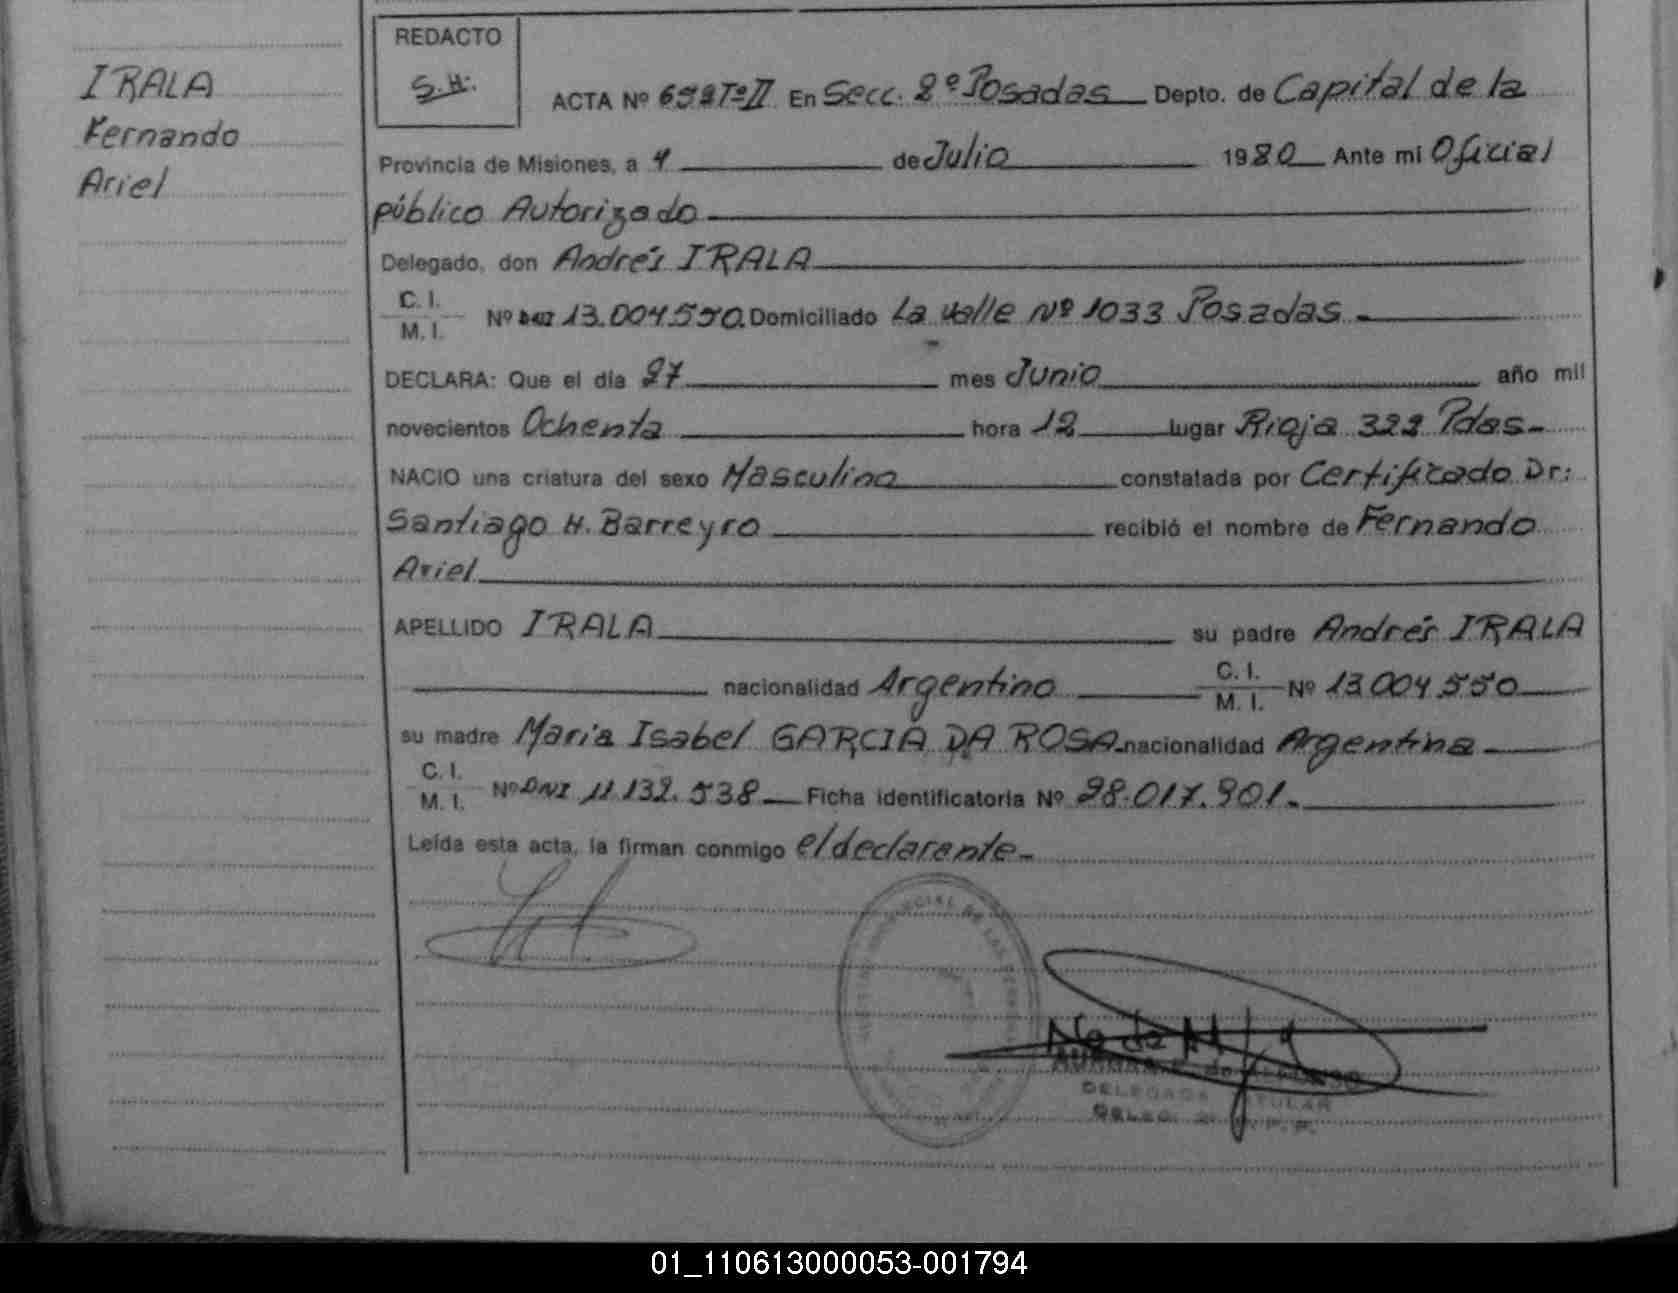 IRALA
Fernando
Ariel
REDACTO
S.H.
ACTA Nº 652 Tº II En Secc. 2º Posadas Depto. de Capital de la
Provincia de Misiones, a 4 de Julio 1980 Ante mi Oficial
público Autorizado
Delegado, don Andrés IRALA
C. I.
M. I. Nº DNI 13.004.550. Domiciliado La valle Nº 1033 Posadas.-
DECLARA: Que el día 27 mes Junio año mil
novecientos Ochenta hora 12 lugar Rioja 322 Pdas.-
NACIO una criatura del sexo Masculino constatada por Certificado Dr:
Santiago H. Barreyro recibió el nombre de Fernando
Ariel
APELLIDO IRALA su padre Andrés IRALA
nacionalidad Argentino C. I. M. I. Nº 13.004.550
su madre Maria Isabel GARCIA DA ROSA nacionalidad Argentina
C. I.
M. I. Nº DNI 11.132.538 Ficha identificatoria Nº 28.017.901.-
Leída esta acta, la firman conmigo el declarante.-
DELEGADA TITULAR
01_110613000053-001794